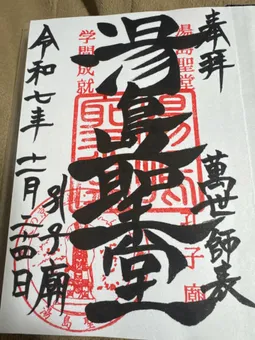 奉拝
湯島聖堂
萬世師表
湯島聖堂
学問成就
孔子廟
令和七年十一月二十四日